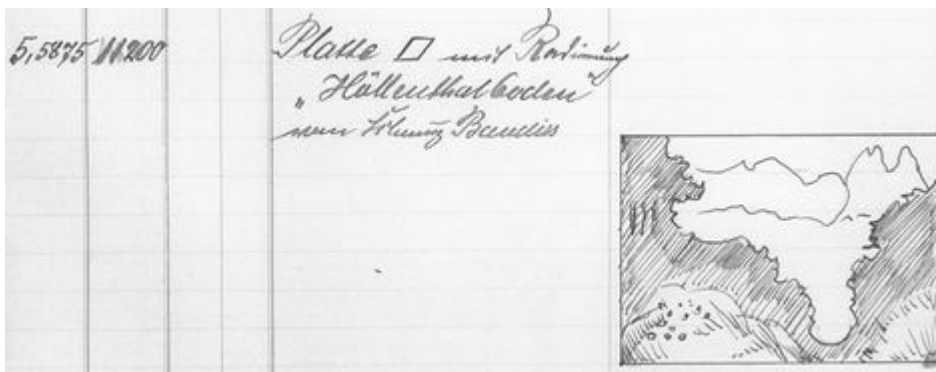 5,5875 11200 Platte □ mit Radirung
„Höllenthalboden“
von Baudiss